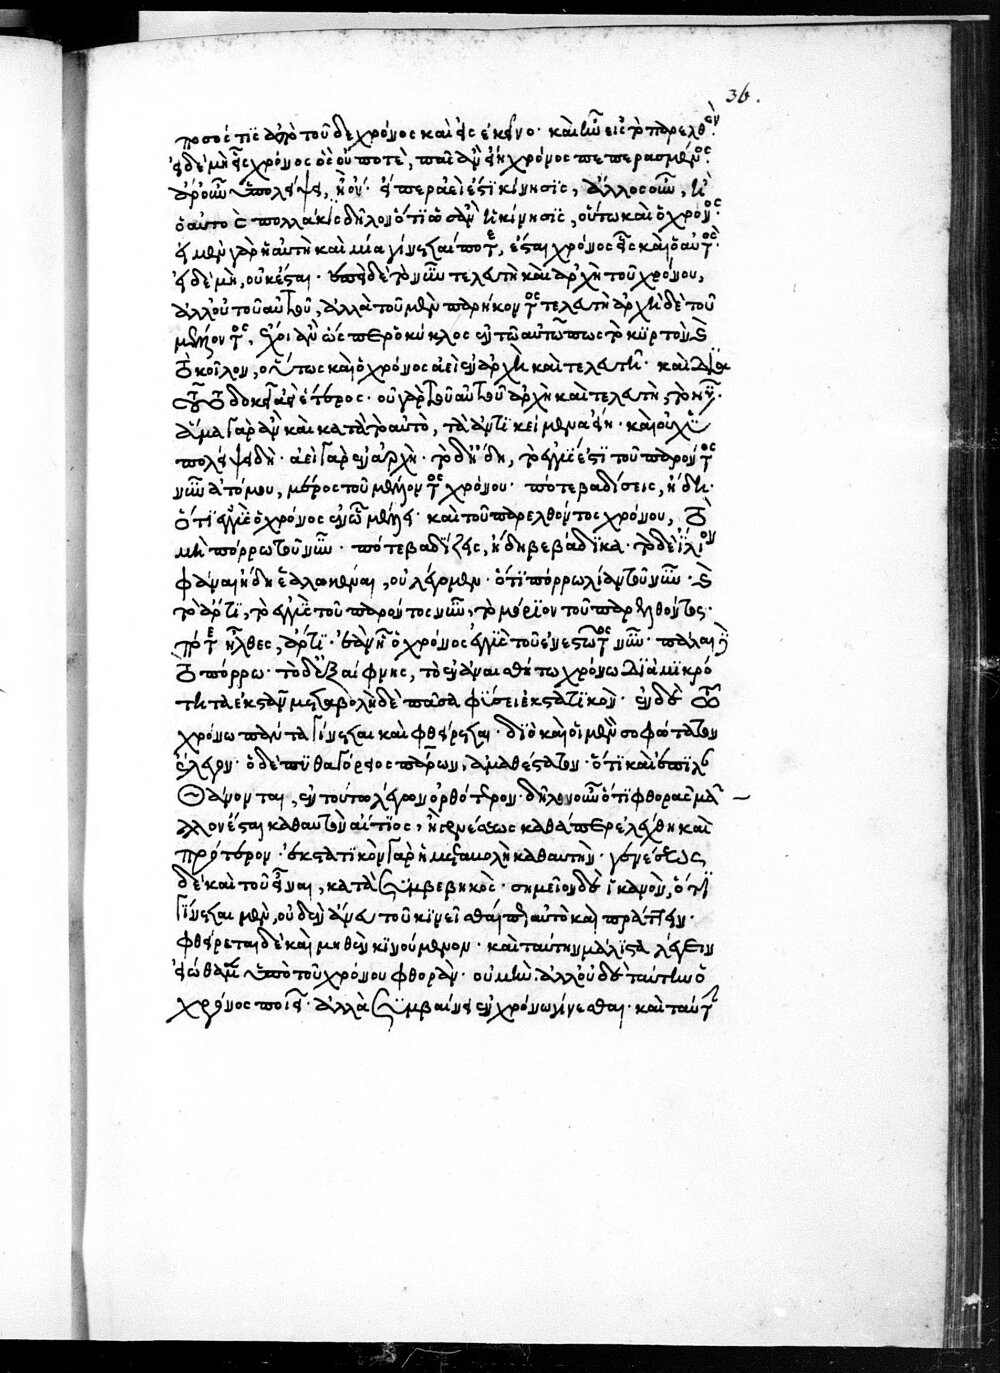 ποσός τις ἀπὸ τοῦδε χρόνος καὶ εἰς ἐκεῖνο· καὶ ἦν εἰς τὸ παρελθόν.
εἰ δὲ μηδεὶς χρόνος ὃς οὔ ποτε, πᾶς ἂν εἴη χρόνος πεπερασμένος.
ἆρ' οὖν ὑπολείψει, ἢ οὔ· εἴπερ ἀεὶ ἔστι κίνησις, ἄλλος οὖν, ἢ
ὁ αὐτὸς πολλάκις δῆλον ὅτι ὡς ἂν ἡ κίνησις, οὕτω καὶ ὁ χρόνος.
εἰ μὲν γὰρ ἡ αὐτὴ καὶ μία γίνεταί ποτε, ἔσται χρόνος εἷς καὶ ὁ αὐτός.
εἰ δὲ μὴ, οὐκ ἔσται. ἐπεὶ δὲ τὸ νῦν τελευτὴ καὶ ἀρχὴ τοῦ χρόνου,
ἀλλ' οὐ τοῦ αὐτοῦ, ἀλλὰ τοῦ μὲν παρήκοντος τελευτὴ ἀρχὴ δὲ τοῦ
μέλλοντος, ἔχοι ἂν ὥσπερ ὁ κύκλος ἐν τῶ αὐτῶ πως τὸ κυρτὸν καὶ
τὸ κοῖλον, οὕτως καὶ ὁ χρόνος ἀεὶ ἐν ἀρχῆ καὶ τελευτῆ· καὶ διὰ
τοῦτο δοκεῖ ἀεὶ ἕτερος· οὐ γὰρ τοῦ αὐτοῦ ἀρχὴ καὶ τελευτὴ, τὸ νῦν.
ἅμα γὰρ ἂν καὶ κατὰ τὸ αὐτὸ, τὰ ἀντικείμενα εἴη· καὶ οὐχ ὑ
πολείψει δή· ἀεὶ γὰρ ἐν ἀρχῆ· τὸ δ' ἤδη, τὸ ἐγγύς ἐστι τοῦ παρόντος
νῦν ἀτόμου, μέρος τοῦ μέλλοντος χρόνου· πότε βαδίσεις, ἤδη.
ὅτι ἐγγὺς ὁ χρόνος ἐν ὧ μέλλει· καὶ τοῦ παρελθόντος χρόνου, τὸ
μὴ πόρρω τοῦ νῦν· πότε βαδίζεις, ἤδη βεβάδικα· τὸ δὲ ἴλιον
φάναι ἤδη ἑαλωκέναι, οὐ λέγομεν· ὅτι πόρρω λίαν τοῦ νῦν· καὶ
τὸ ἄρτι, τὸ ἐγγὺς τοῦ παρόντος νῦν, τὸ μόριον τοῦ παρεληλυθότος.
πότε ἦλθες, ἄρτι· ἐὰν ἦ ὁ χρόνος ἐγγὺς τοῦ ἐνεστῶτος νῦν· πάλαι δὲ
τὸ πόρρω· τὸ δ' ἐξαίφνης, τὸ ἐν ἀναισθήτω χρόνω διὰ μικρό
τητα ἐκστάν· μεταβολὴ δὲ πᾶσα φύσει ἐκστατικόν· ἐν δὲ τῶ
χρόνω πάντα γίνεται καὶ φθείρεται· διὸ καὶ οἱ μὲν σοφώτατον
ἔλεγον· ὁ δὲ πυθαγόρειος πάρων, ἀμαθέστατον· ὅτι καὶ ἐπιλ
θάνονται, ἐν τούτω λέγων ὀρθότερον· δῆλον οὖν ὅτι φθορᾶς μᾶ
λλον ἔσται καθ' αὑτὸν αἴτιος, ἢ γενέσεως καθάπερ ἐλέχθη καὶ
πρότερον· ἐκστατικὸν γὰρ ἡ μεταβολὴ καθ' αὑτήν· γενέσεως
δὲ καὶ τοῦ εἶναι, κατὰ συμβεβηκός· σημεῖον δὲ ἱκανὸν, ὅτι
γίνεται μὲν, οὐδὲν ἄνευ τοῦ κινεῖσθαί πως αὐτὸ καὶ πράττειν.
φθείρεται δὲ καὶ μηθὲν κινούμενον· καὶ ταύτην μάλιστα λέγειν
εἰώθαμεν ὑπὸ τοῦ χρόνου φθοράν· οὐ μὴν ἀλλ' οὐδὲ ταύτην ὁ
χρόνος ποιεῖ· ἀλλὰ συμβαίνει ἐν χρόνω γίνεσθαι· καὶ ταύτ